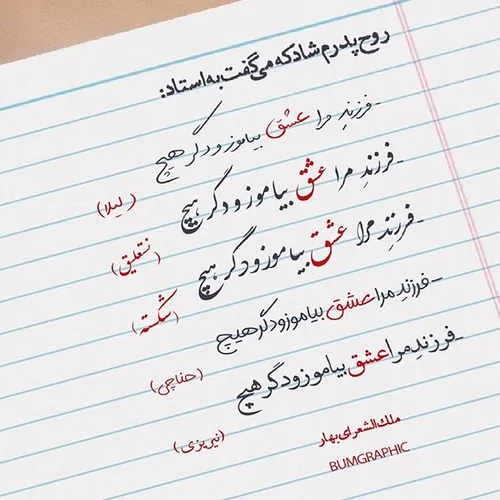 روح پدرم شاد که می گفت به استاد:
-فرزندِ مرا عشق بیاموز و دگر هیچ
(لیلا)
-فرزندِ مرا عشق بیاموز و دگر هیچ
(نستعلیق)
-فرزندِ مرا عشق بیاموز و دگر هیچ
(شکسته)
-فرزندِ مرا عشق بیاموز و دگر هیچ
(حناچی)
-فرزندِ مرا عشق بیاموز و دگر هیچ
(نیریزی)
ملک الشعرای بهار
BUMGRAPHIC